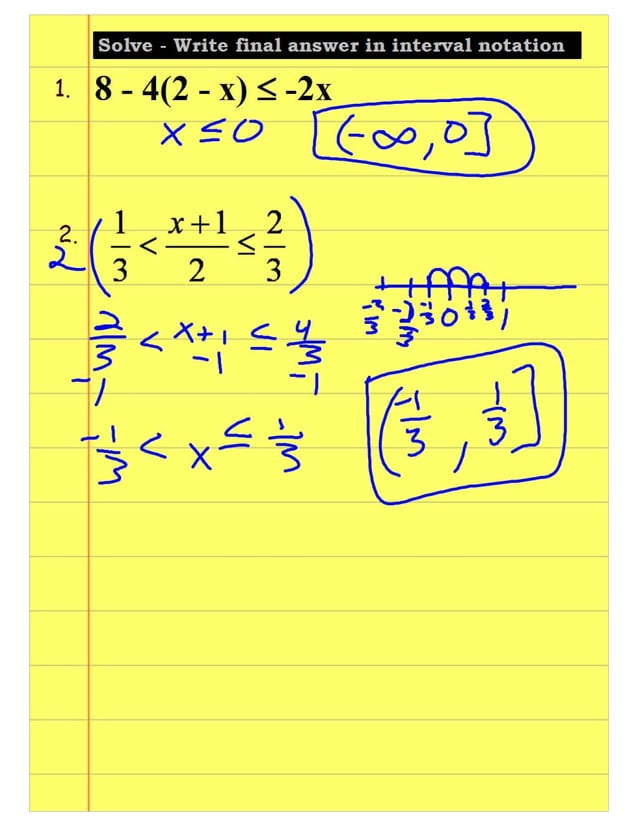 Solve - Write final answer in interval notation
1. 8 - 4(2 - x) ≤ -2x
x ≤ 0 (-∞, 0]
2. 2 ( 1/3 < x+1/2 ≤ 2/3 )
2/3 < x+1 ≤ 4/3
-1 -1 -1
-1/3 < x ≤ 1/3
-3/3 -2/3 -1/3 0 1/3 2/3 1
(-1/3, 1/3]